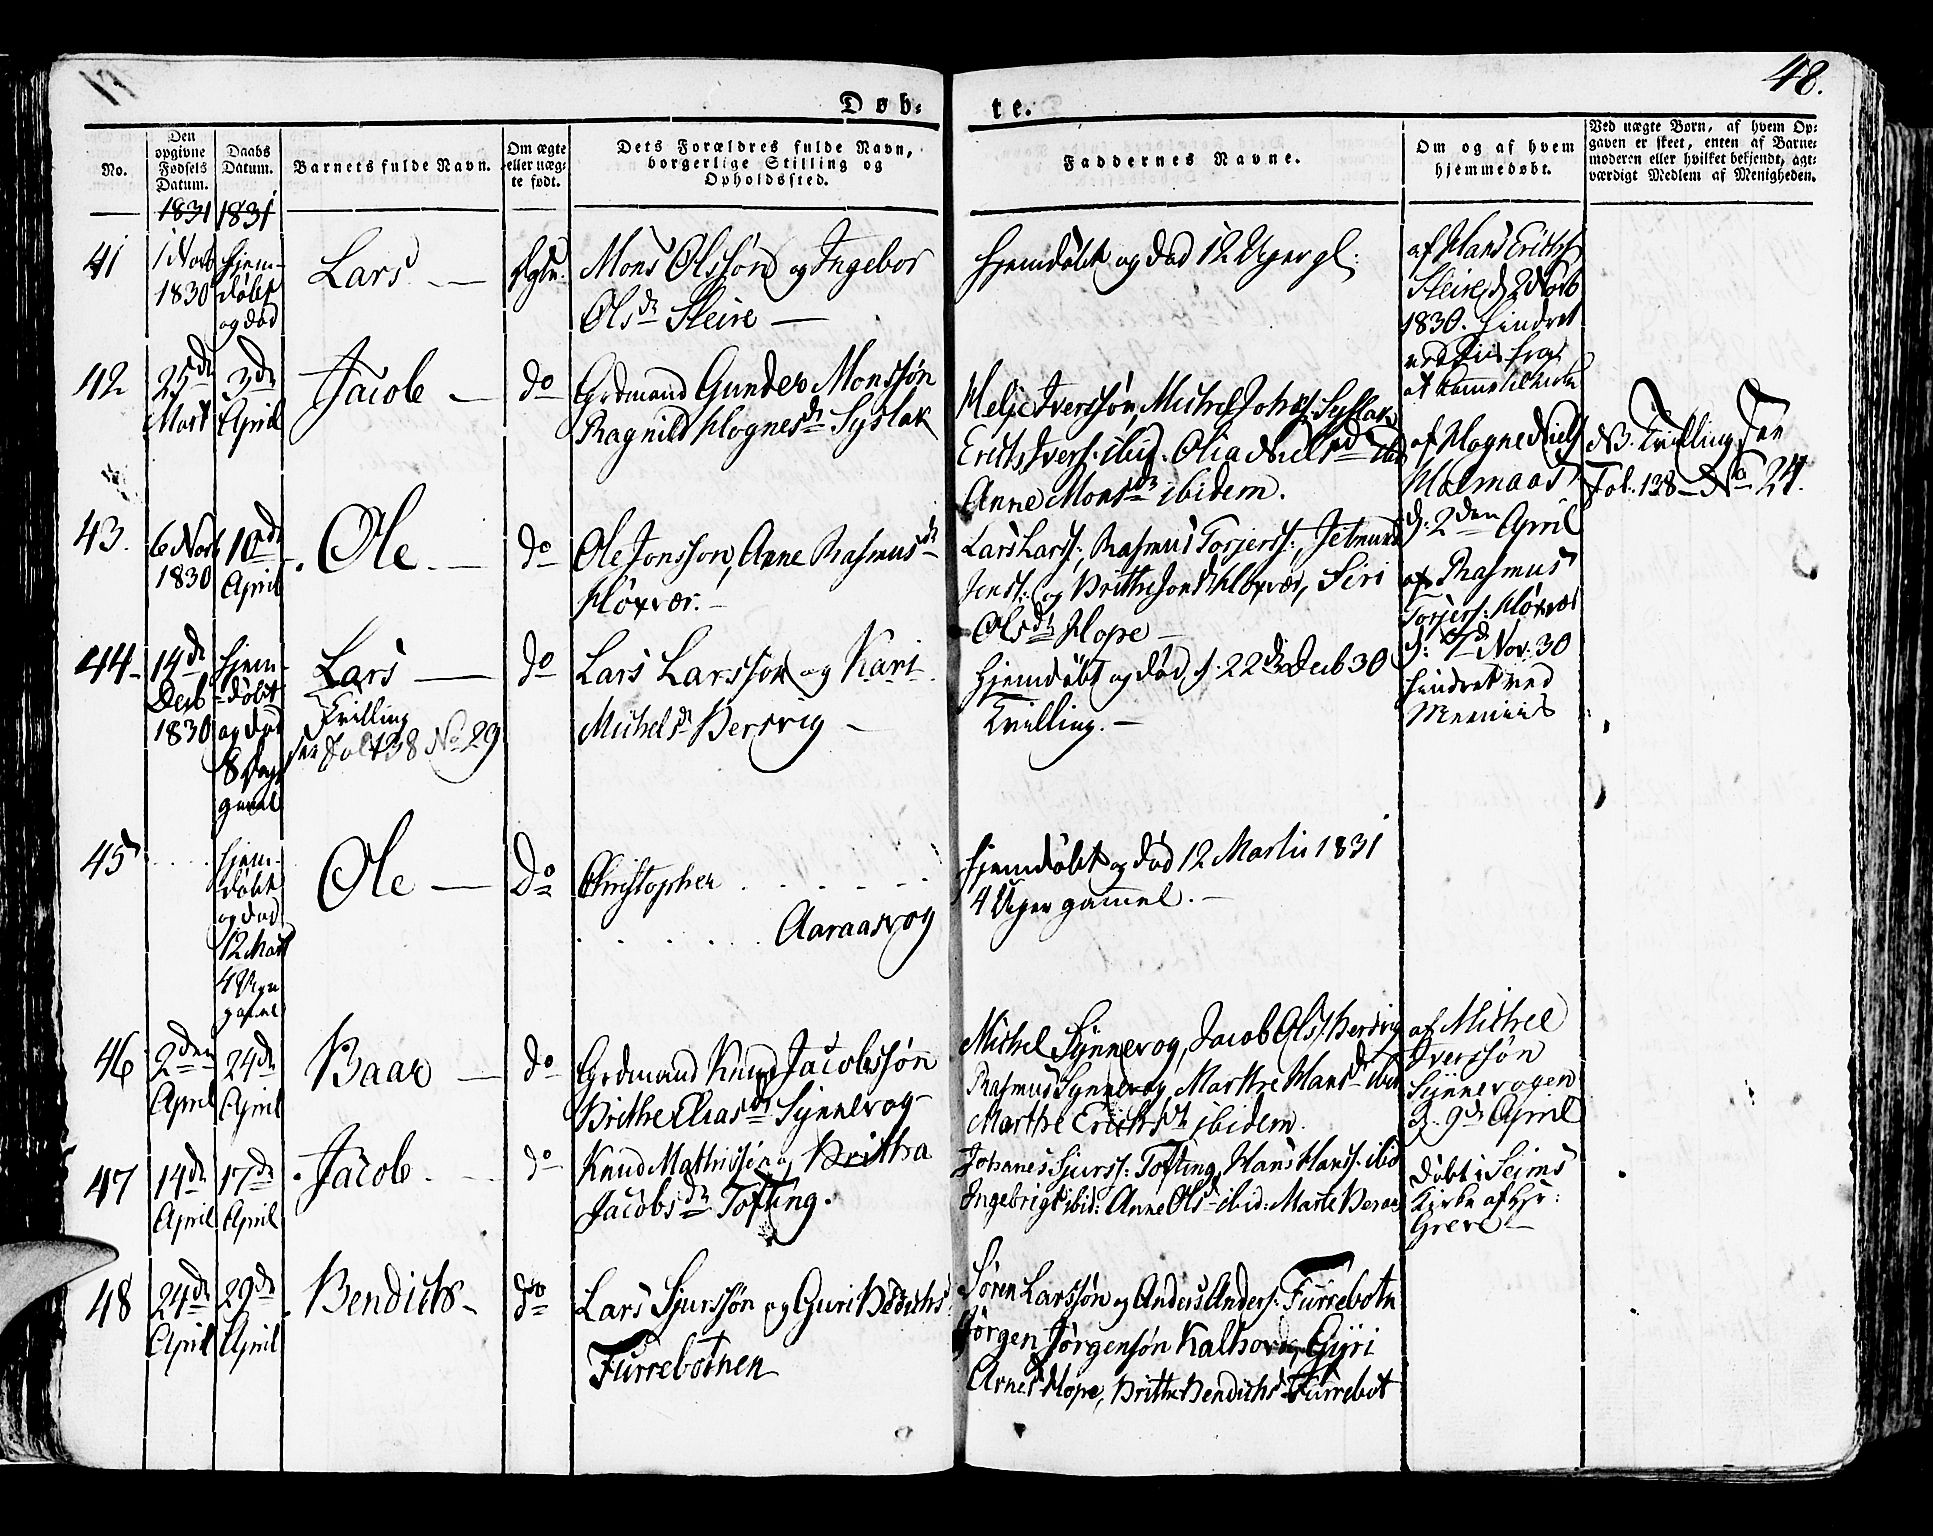 48.
Døb-
te.
No.
Den opgivne Fødsels Datum.
Daabs Datum.
Barnets fulde Navn.
Om ægte eller uægte født.
Dets Forældres fulde Navn, borgerlige Stilling og Opholdssted.
Faddernes Navne.
Om og af hvem hjemmedøbt.
Ved uægte Børn, af hvem Opgaven er skeet, enten af Barnemoderen eller hvilket bekjendt, agtværdigt Medlem af Menigheden.
1831 1831
41
1 Novb 1830
hjemdøbt og død
Lars
Ægte.
Mons Olssøn og Ingebor
Olsdr Sleire
Hjemdøbt og død 12 Uger gl.
af Hans Erikss
Sleire, d 2 Novb
1830. hindret
42
25de Mart
3de April
Jacob
do
Grdmand Gunder Monssøn
Ragnild Mognesdr Syslak
Helje Iverssøn, Michel Johs: Syslak,
Ericts Iverss. ibid. Olia Nielsdr ibid
Anne Monsdr ibidem.
af Mogne Niels
d. 2den April
NB. Tvilling, see
Fol. 138 No 24.
43.
6 Novb 1830
10de April
Ole
do
Ole Jonsson, Anne Rasmusdr
Lars Larss:, Rasmus Torjerss:, Jetmund
Jenss: og Britthe Jonsdr Seiri
Olsdr Hope
af Rasmus
Torjers:
d: 7de Nov: 30
44
14de Decb 1830
hjemdøbt og død 8 Dage gamel
Lars
Tvilling
see Fol 138 No 29
do
Lars Larsson og Kari
Michelsdr Bersvig
Hjemdøbt og død d: 22de Decb 30
Tvilling.
hindret ved
45
hjemdøbt og død 12 Mart 4 Uger gamel
Ole
Do
Christopher
Aaraasvog
hjemdøbt og død 12 Martii 1831
4 Uger gammel.
46
2den April
24de April
Baar
do
Grdmand Knud Jacobssøn
Brithe Eliasdr Synnevog
Michel Synnevog, Jacob Ols: Bersvig
Rasmus Synnevog, Marthe Hansdr ibid
Marthe Erichsdr ibidem.
af Michel
Iverssøn
Synnevogen
d. 9de April
47
14de April
17de April
Jacob
do
Knud Mathissøn og Britha
Jacobsdr Tofting.
Johanes Sjurss: Tofting, Hans Hanss. ibid
Ingebrigt ibid: Anne Olsd ibid: Marte
Døbt i Seims
Kirke af Hr:
Greve
48
24de April
29de April
Bendichs
do
Lars Sjurssøn og Guri Bedichs
Furrebotnen
Søren Larssøn og Anders Anders: Furrebotn
Jørgen Jørgensøn Kalhovd, Gyri
Arnesd Hope, Britthe Bendichsd Furrebot